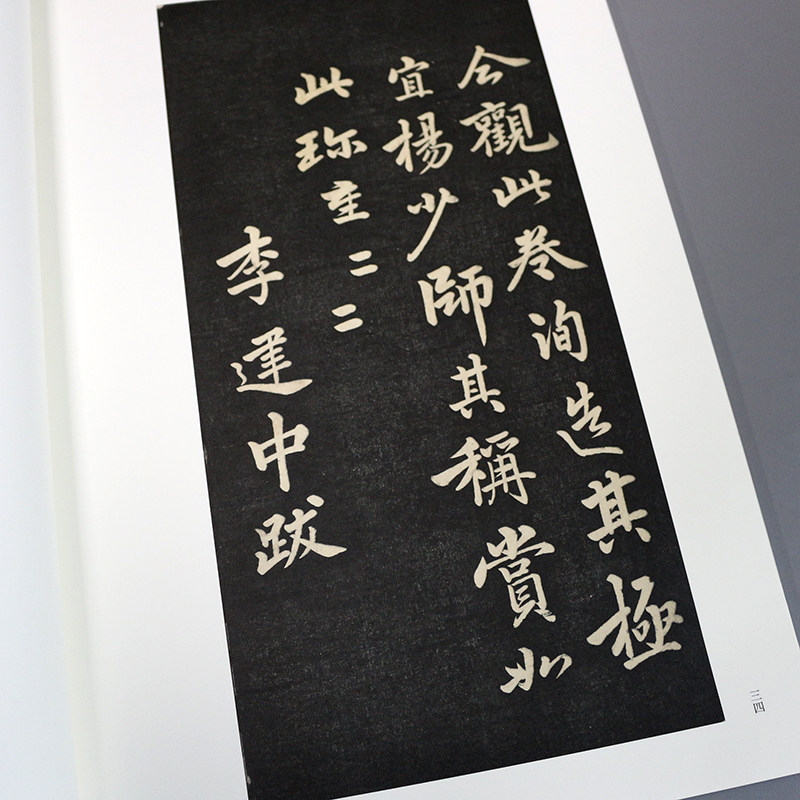 今觀此卷洵造其極
宜楊少師其稱賞如
此珎重二二
李建中跋
三四